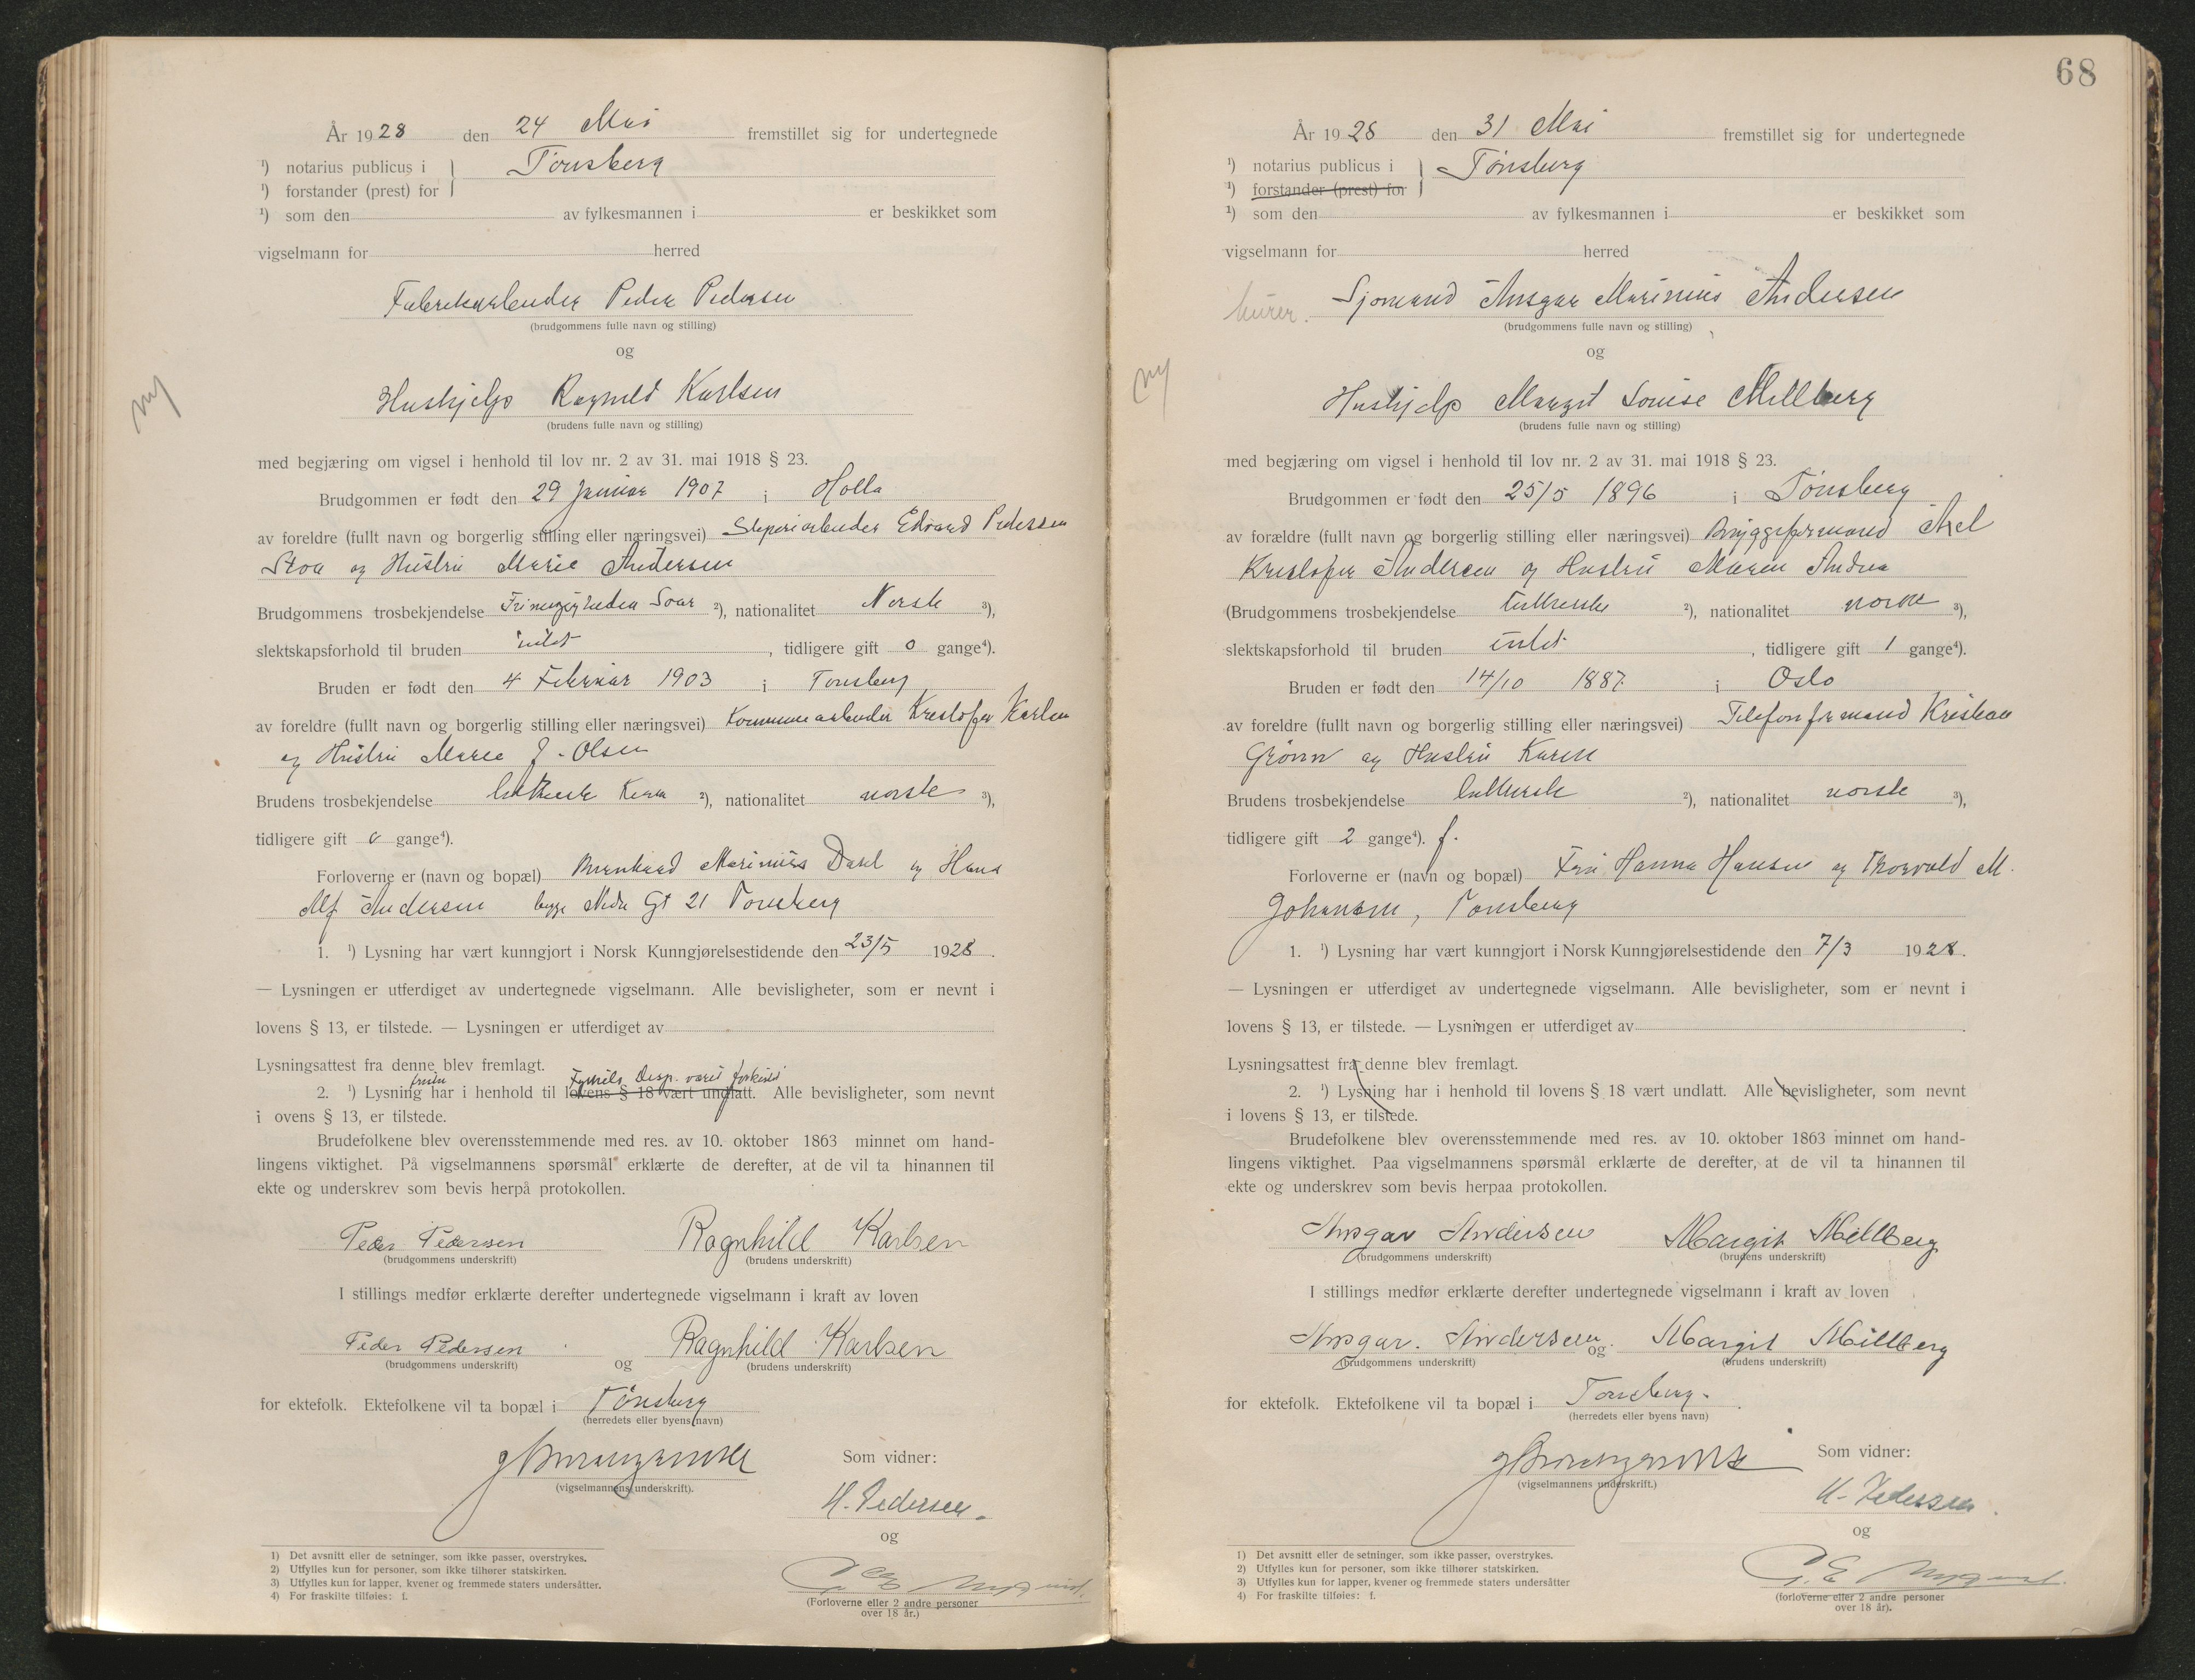 År 1928 den 24 Mai fremstillet sig for undertegnede
¹) notarius publicus i } Tønsberg
¹) forstander (prest) for
¹) som den av fylkesmannen i er beskikket som
vigselmann for herred
Fabrikarbeider Peder Pedersen
(brudgommens fulle navn og stilling)
og
ny
Hushjelp Ragnild Karlsen
(brudens fulle navn og stilling)
med begjæring om vigsel i henhold til lov nr. 2 av 31. mai 1918 § 23.
Brudgommen er født den 29 Januar 1907 i Holla
av foreldre (fullt navn og borgerlig stilling eller næringsvei) Sliperiarbeider Edvard Pedersen
Stoa og Hustru Marie Andersen
Brudgommens trosbekjendelse Frimenigheden ²), nationalitet Norsk ³),
slektskapsforhold til bruden intet , tidligere gift 0 gange⁴).
Bruden er født den 4 Februar 1903 i Tønsberg
av foreldre (fullt navn og borgerlig stilling eller næringsvei) Kommunearbeider Kristofer Karlsen
og Hustru Marie J. Olsen
Brudens trosbekjendelse luthersk ²), nationalitet norsk ³),
tidligere gift 0 gange⁴).
Forloverne er (navn og bopæl) Bernhard Marinius Dahl og Hans
Alf Andersen begge Nedre Gt 21 Tønsberg
1. ¹) Lysning har vært kunngjort i Norsk Kunngjørelsestidende den 23/5 1928.
— Lysningen er utferdiget av undertegnede vigselmann. Alle bevisligheter, som er nevnt i
lovens § 13, er tilstede. — Lysningen er utferdiget av
Lysningsattest fra denne blev fremlagt.
fristen Fylkets Disp. været forkortet
2. ¹) Lysning har i henhold til lovens § 18 vært undlatt. Alle bevisligheter, som nevnt
i ovens § 13, er tilstede.
Brudefolkene blev overensstemmende med res. av 10. oktober 1863 minnet om hand-
lingens viktighet. På vigselmannens spørsmål erklærte de derefter, at de vil ta hinannen til
ekte og underskrev som bevis herpå protokollen.
Peder Pedersen Ragnhild Karlsen
(brudgommens underskrift) (brudens underskrift)
I stillings medfør erklærte derefter undertegnede vigselmann i kraft av loven
Peder Pedersen og Ragnhild Karlsen
(brudgommens underskrift) (brudens underskrift)
for ektefolk. Ektefolkene vil ta bopæl i Tønsberg
(herredets eller byens navn)
Som vidner:
(vigselmannens underskrift).
H. Pedersen
og
(Forloverne eller 2 andre personer
over 18 år.)
1) Det avsnitt eller de setninger, som ikke passer, overstrykes.
2) Utfylles kun for personer, som ikke tilhører statskirken.
3) Utfylles kun for lapper, kvener og fremmede staters undersåtter.
4) For fraskilte tilføies: f.
68
År 1928 den 31 Mai fremstillet sig for undertegnede
¹) notarius publicus i } Tønsberg
¹) forstander (prest) for
¹) som den av fylkesmannen i er beskikket som
vigselmann for herred
murer. Sjømand Ansgar Marinius Andersen
(brudgommens fulle navn og stilling)
og
ny
Hushjelp Margit Louise Millberg
(brudens fulle navn og stilling)
med begjæring om vigsel i henhold til lov nr. 2 av 31. mai 1918 § 23.
Brudgommen er født den 25/5 1896 i Tønsberg
av forældre (fullt navn og borgerlig stilling eller næringsvei) Bryggeformand Axel
Kristofer Andersen og Hustru Maren Andrea
(Brudgommens trosbekjendelse luthersk ²), nationalitet norsk ³),
slektskapsforhold til bruden intet , tidligere gift 1 gange⁴).
Bruden er født den 14/10 1887. i Oslo
av foreldre (fullt navn og borgerlig stilling eller næringsvei) Telefonformand Kristian
Grønn og Hustru Karen
Brudens trosbekjendelse luthersk ²), nationalitet norsk ³),
tidligere gift 2 gange⁴). f.
Forloverne er (navn og bopæl) Fru Hanna Hansen og Thorvald M.
Johansen, Tønsberg
1. ¹) Lysning har vært kunngjort i Norsk Kunngjørelsestidende den 7/3 1928.
— Lysningen er utferdiget av undertegnede vigselmann. Alle bevisligheter, som er nevnt i
lovens § 13, er tilstede. — Lysningen er utferdiget av .
Lysningsattest fra denne blev fremlagt.
2. ¹) Lysning har i henhold til lovens § 18 vært undlatt. Alle bevisligheter, som nevnt
i lovens § 13, er tilstede.
Brudefolkene blev overensstemmende med res. av 10. oktober 1863 minnet om hand-
lingens viktighet. Paa vigselmannens spørsmål erklærte de derefter, at de vil ta hinannen til
ekte og underskrev som bevis herpaa protokollen.
Ansgar Andersen Margit Millberg
(brudgommens underskrift) (brudens underskrift)
I stillings medfør erklærte derefter undertegnede vigselmann i kraft av loven
Ansgar. Andersen og Margit Millberg
(brudgommens underskrift) (brudens underskrift)
for ektefolk. Ektefolkene vil ta bopæl i Tønsberg.
(herredets eller byens navn)
Som vidner:
(vigselmannens underskrift.)
H. Pedersen
og
(forloverne eller 2 andre personer
over 18 år).
1) Det avsnitt eller de setninger, som ikke passer, overstrykes.
2) Utfylles kun for personer, som ikke tilhører statskirken.
3) Utfylles kun for lapper, kvener og fremmede staters undersåtter
4) For fraskilte tilføies: f.